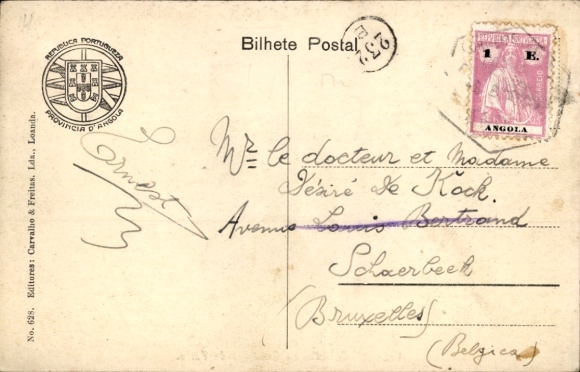 REPUBLICA PORTUGUEZA
PROVINCIA D'ANGOLA
Bilhete Postal
232
B
1 E.
CORREIO
ANGOLA
Ernest
Mr le docteur et Madame
Désiré De Kock.
Avenue Louis Bertrand
Schaerbeek
(Bruxelles)
(Belgica)
No. 628. Editores: Carvalho & Freitas, Lda., Loanda.